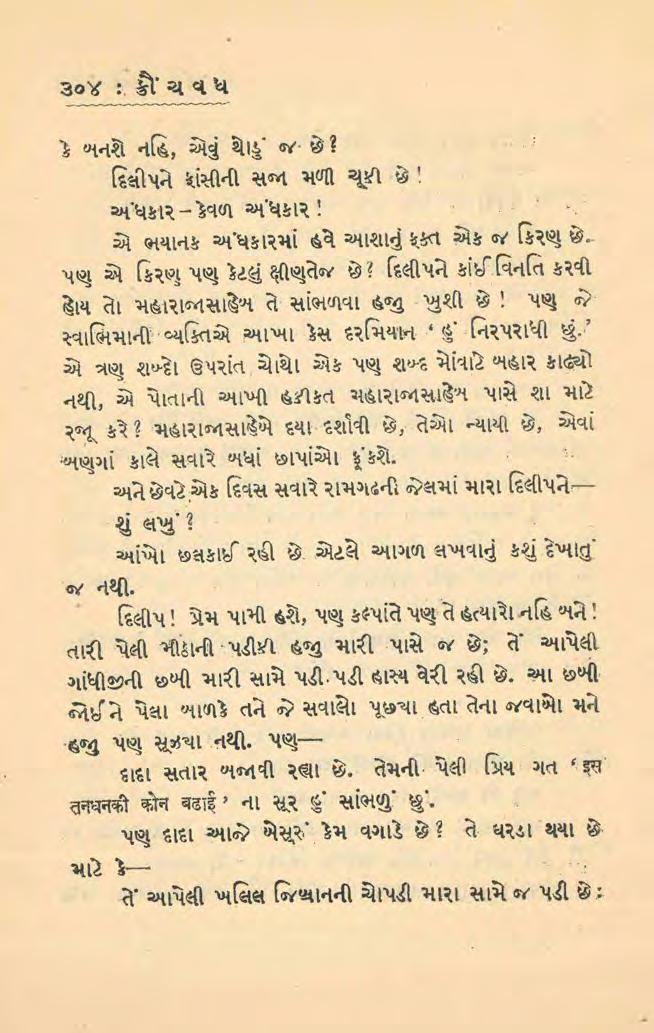 ૩૦૪ : ક્રૌંચવધ
કે બનશે નહિ, એવું થોડું જ છે?
દિલીપને ફાંસીની સજા મળી ચૂકી છે!
અંધકાર – કેવળ અંધકાર!
એ ભયાનક અંધકારમાં હવે આશાનું ફક્ત એક જ કિરણ છે.
પણ એ કિરણ પણ કેટલું ક્ષીણતેજ છે? દિલીપને કાંઈ વિનતિ કરવી
હોય તો મહારાજાસાહેબ તે સાંભળવા હજી ખુશી છે! પણ જે
સ્વાભિમાની વ્યક્તિએ આખા કેસ દરમિયાન ‘ હું નિરપરાધી છું.’
એ ત્રણ શબ્દો ઉપરાંત ચોથો એક પણ શબ્દ મોંવાટે બહાર કાઢ્યો
નથી, એ પોતાની આખી હકીકત મહારાજાસાહેબ પાસે શા માટે
રજૂ કરે? મહારાજાસાહેબે દયા દર્શાવી છે, તેઓ ન્યાયી છે, એવાં
બણગાં કાલે સવારે બધાં છાપાંઓ ફૂંકશે.
અને છેવટે એક દિવસ સવારે રામગઢની જેલમાં મારા દિલીપને—
શું લખું?
આંખો છલકાઈ રહી છે એટલે આગળ લખવાનું કશું દેખાતું
જ નથી.
દિલીપ! પ્રેમ પામી હશે, પણ કલ્પાંતે પણ તે હત્યારો નહિ બને!
તારી પેલી મીઠાની પડીકી હજી મારી પાસે જ છે; તેં આપેલી
ગાંધીજીની છબી મારી સામે પડી પડી હાસ્ય વેરી રહી છે. આ છબી
જોઈને પેલા બાળકે તને જે સવાલો પૂછ્યા હતા તેના જવાબો મને
હજી પણ સૂઝ્યા નથી. પણ—
દાદા સતાર બજાવી રહ્યા છે. તેમની પેલી પ્રિય ગત ‘ इस
तनधनकी कोन बढाई ’ ના સૂર હું સાંભળું છું.
પણ દાદા આજે બેસૂરું કેમ વગાડે છે? તે ઘરડા થયા છે
માટે કે—
તેં આપેલી ખલિલ જિબ્રાનની ચોપડી મારા સામે જ પડી છે: